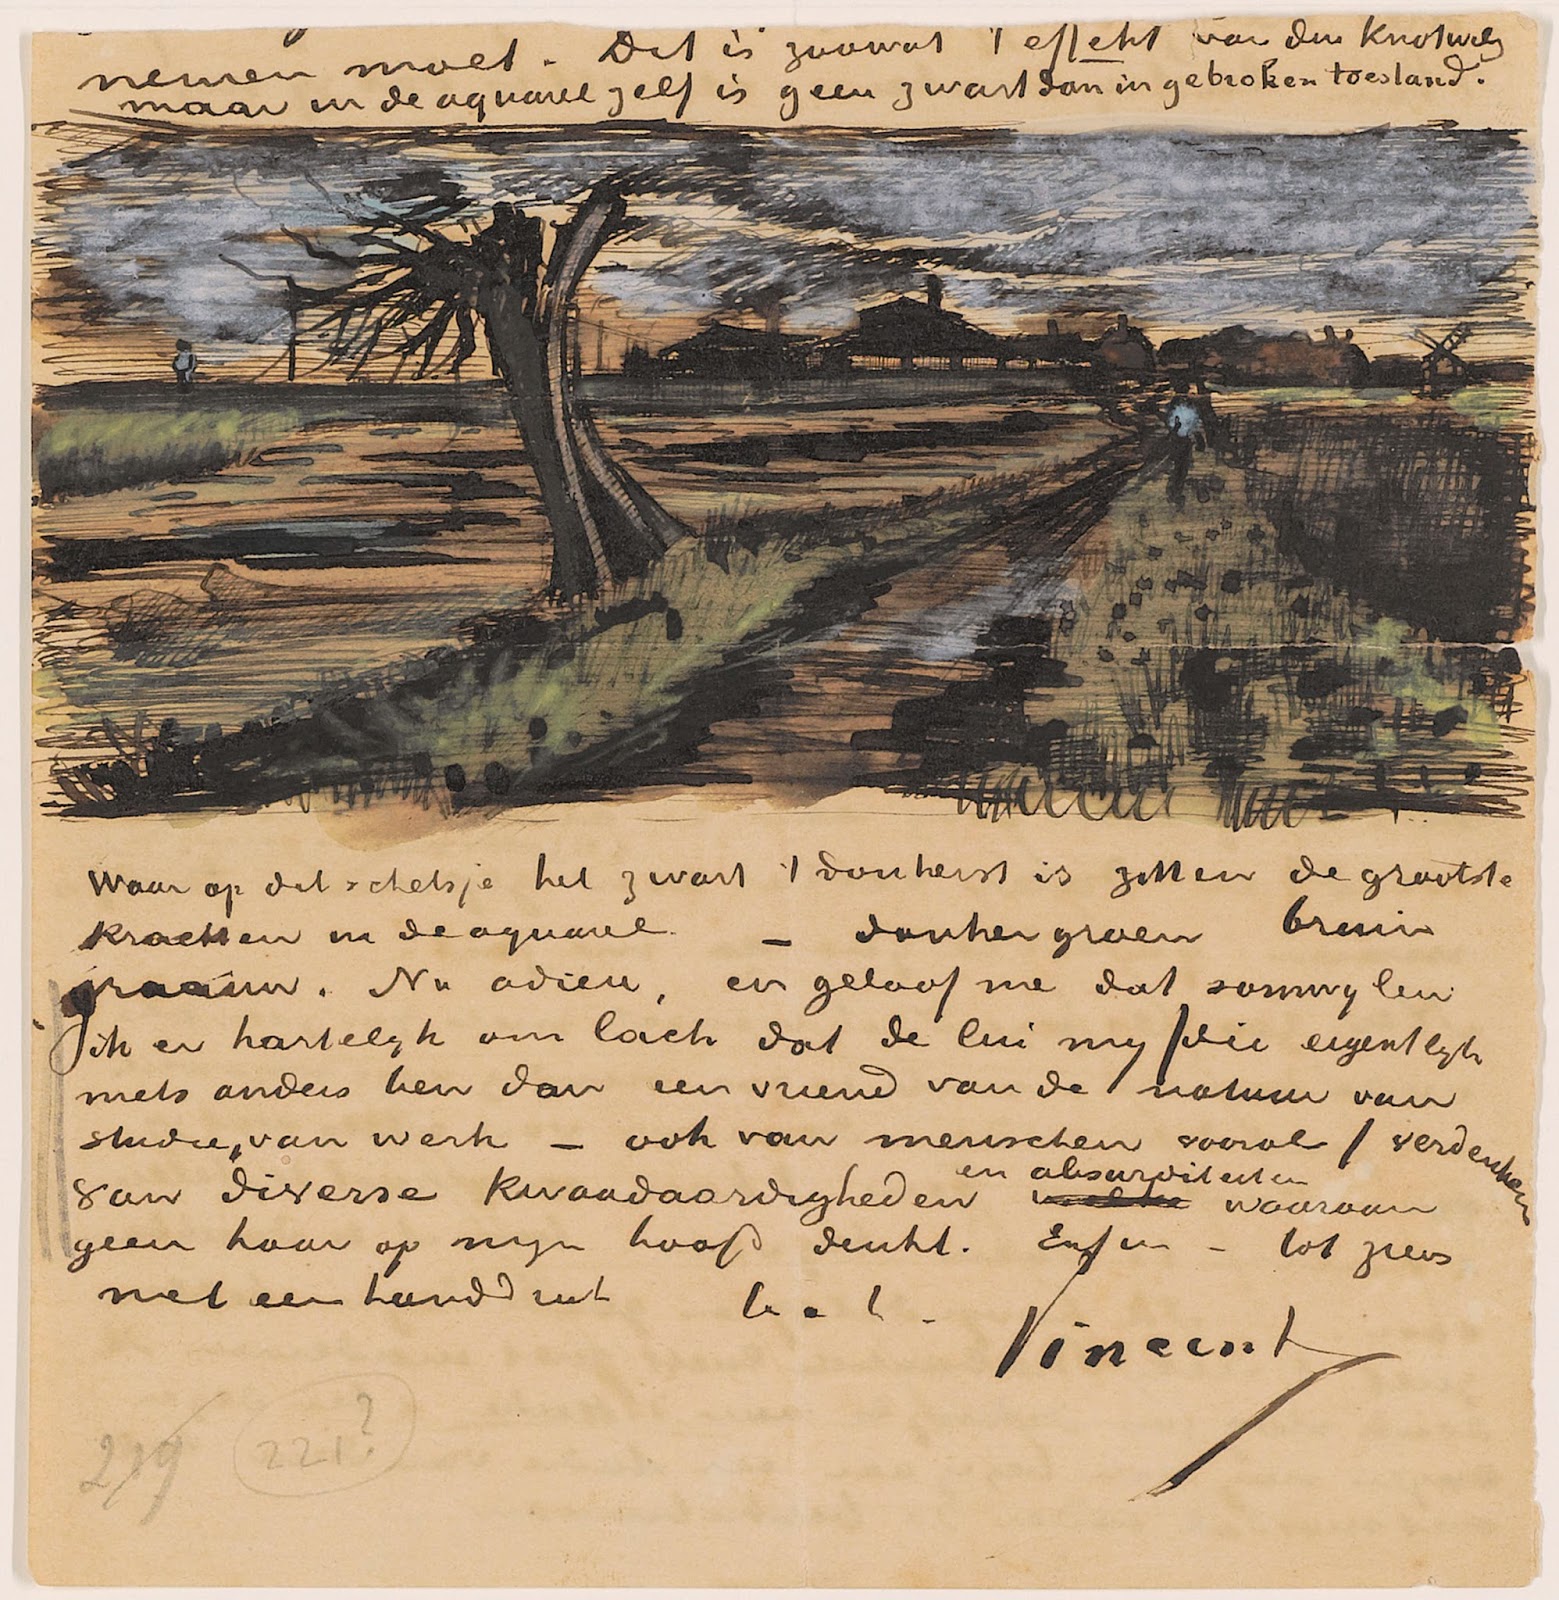 nemen moet. Dit is zoowat 't effekt van den knotwilg
maar in de aquarel zelf is geen zwart dan in gebroken toestand.
Waar op dit schetsje het zwart 't donkerst is zitten de grootste
krachten in de aquarel – donkergroen bruin
graauw. Nu adieu, en geloof me dat somwylen
ik er hartelyk om lach dat de lui my /die eigentlyk
niets anders ben dan een vriend van de natuur van
studie, van werk – ook van menschen vooral/ verdenken
en absurditeiten
van diverse kwaadaardigheden waaraan
geen haar op myn hoofd denkt. Enfin – tot ziens
met een handdruk
Vincent
219
221?